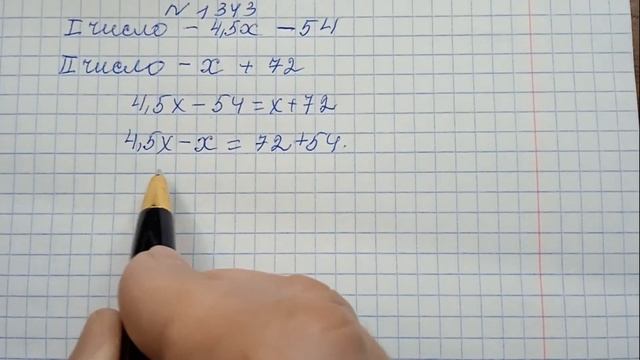 № 1343
I число - 4,5x - 54
II число - x + 72
4,5x - 54 = x + 72
4,5x - x = 72 + 54.